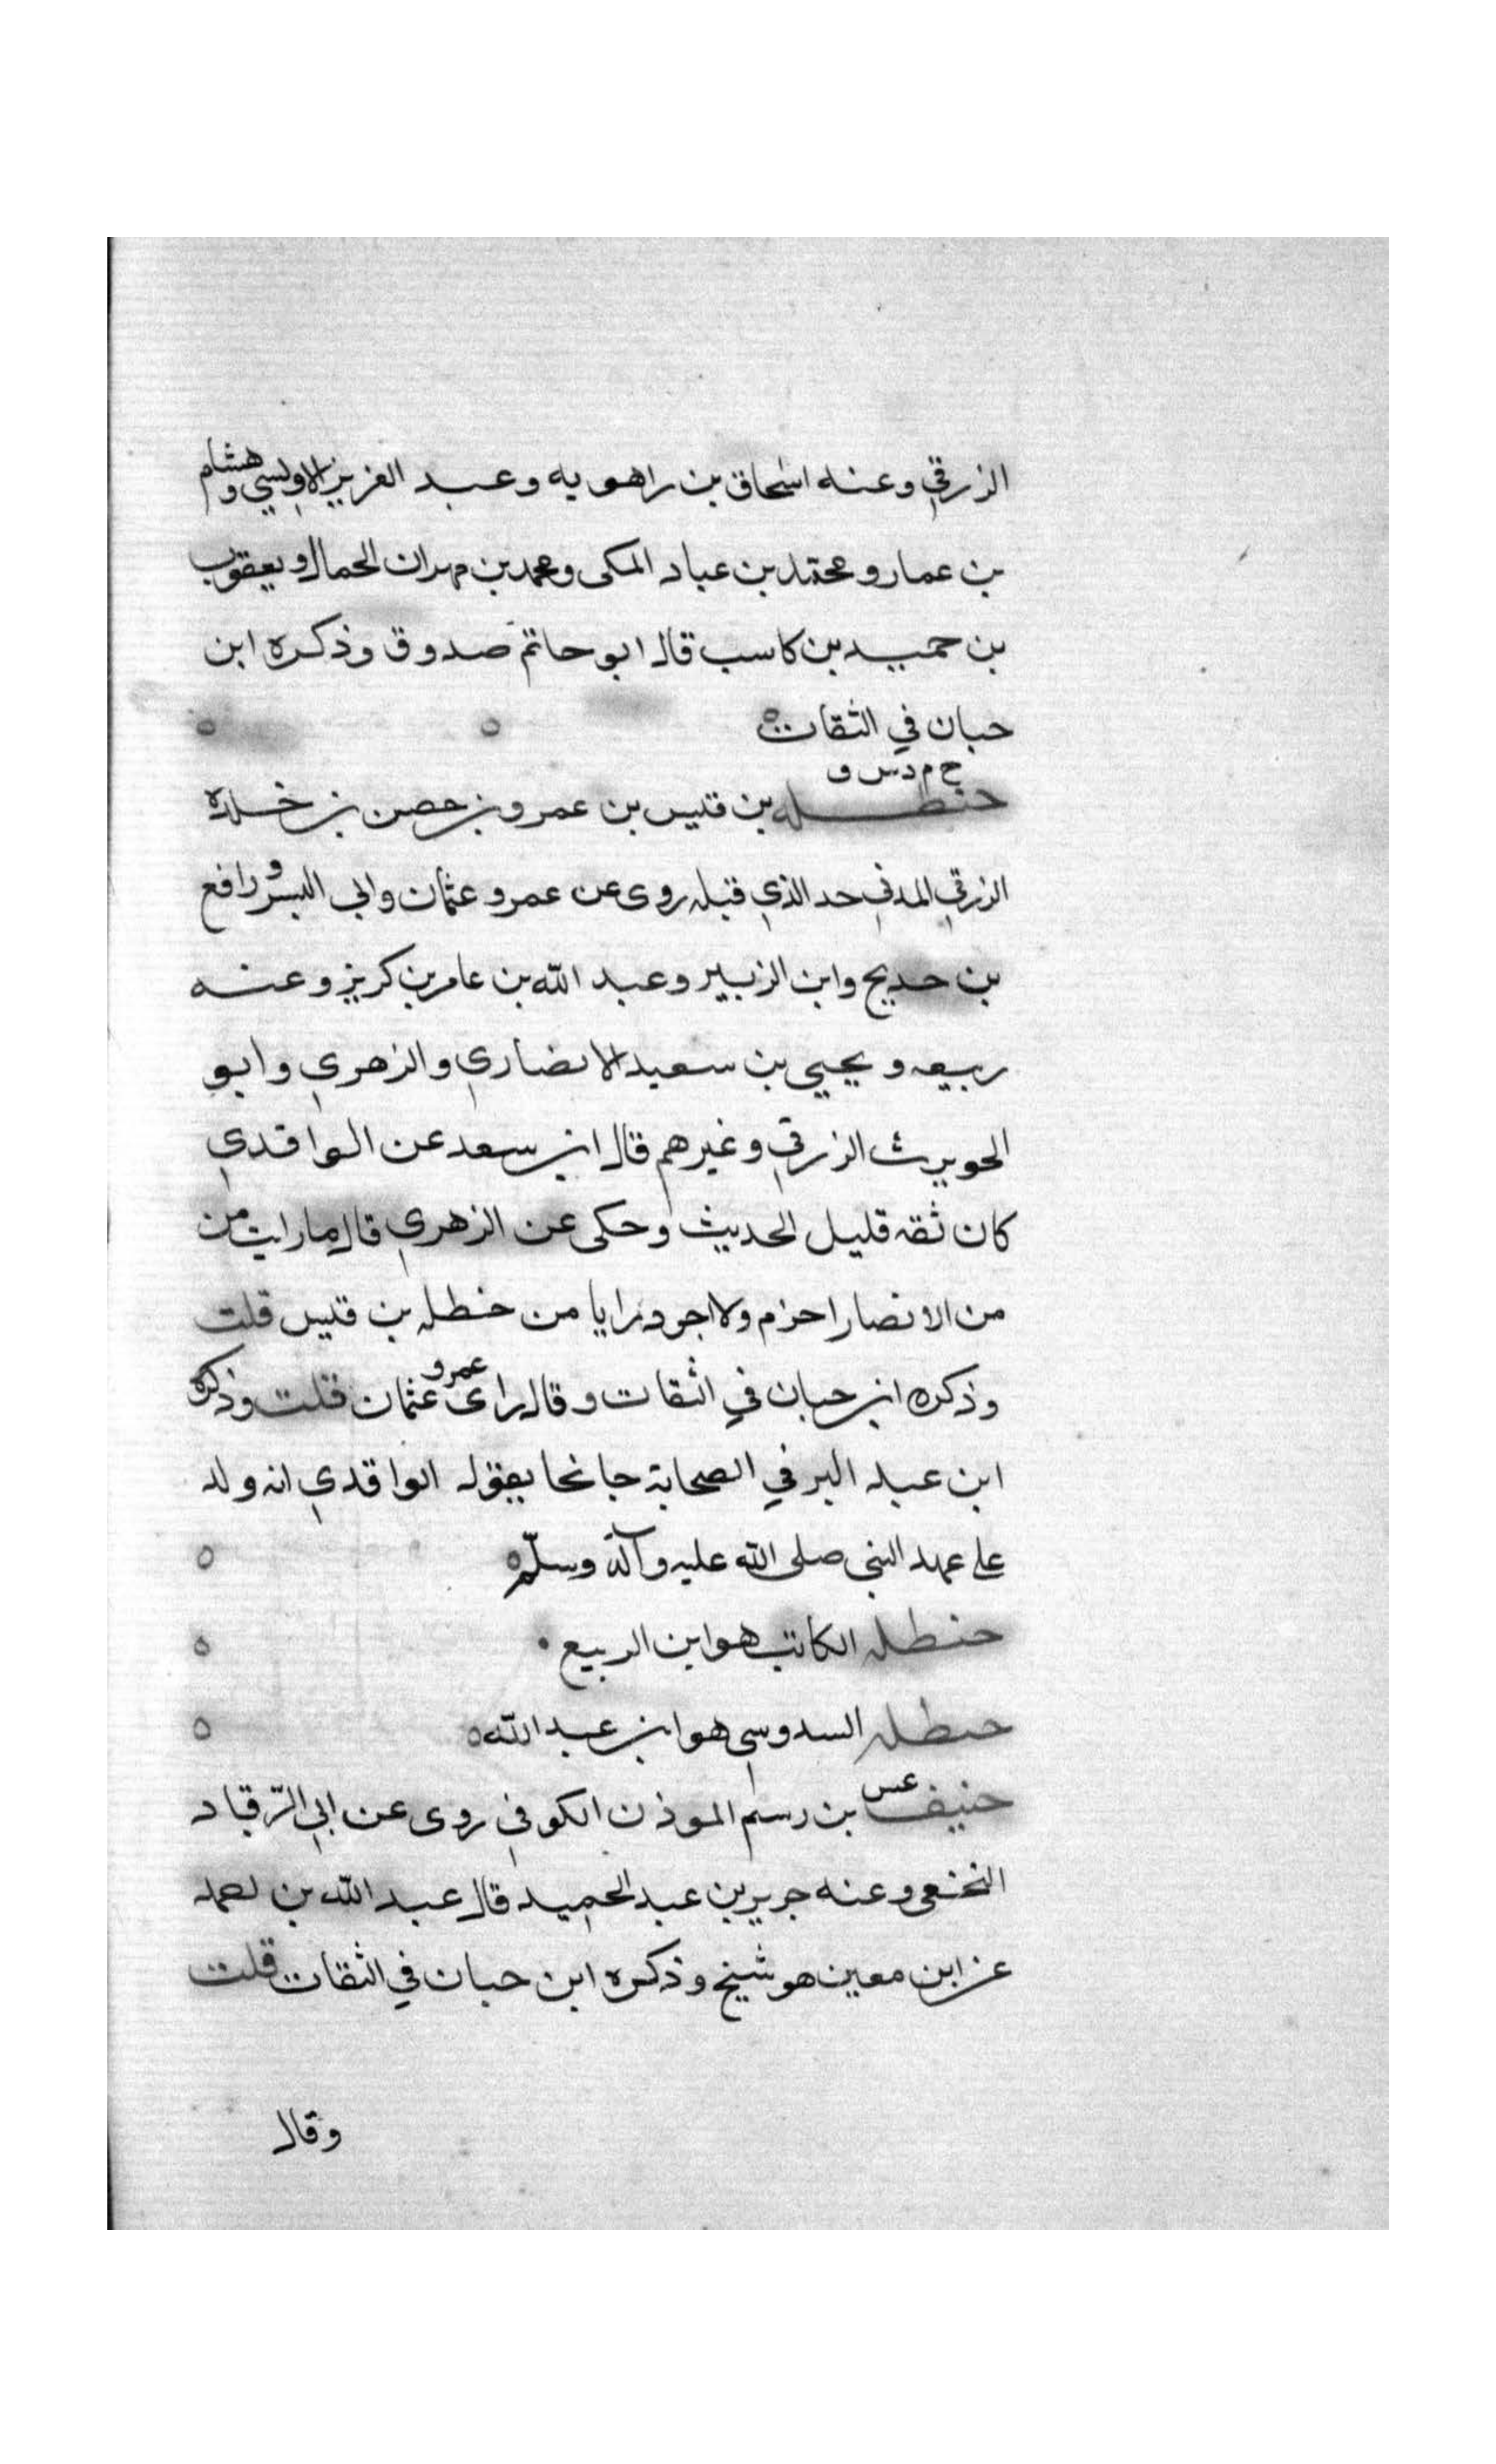 الزرقي وعنه اسحاق بن راهويه وعبد العزيز الاويسي وهشام
بن عمار ومحمد بن عباد المكى ومحمد بن مهران الحمال ويعقوب
بن حميد بن كاسب قال ابو حاتم صدوق وذكره ابن
حبان في الثقات
خ م د س ق
حنظله بن قيس بن عمرو بن حصن بن خلده
الزرقي المدني جد الذي قبله روى عن عمر وعثمان وابي اليسر ورافع
بن خديج وابن الزبير وعبد الله بن عامر بن كريز وعنه
ربيعه ويحيي بن سعيد الانصاري والزهري وابو
الحويرث الزرقي وغيرهم قال ابن سعد عن الواقدي
كان ثقه قليل الحديث وحكى عن الزهري قال ما رايت من
من الانصار احزم ولا اجود رايا من حنظله بن قيس قلت
وذكره ابن حبان في الثقات وقال راى عمر وعثمان قلت وذكره
ابن عبد البر في الصحابة جانحا بقول الواقدي انه ولد
على عهد النبي صلى الله عليه وآله وسلم
حنظله الكاتب هو ابن الربيع
حنظله السدوسي هو ابن عبد الله
عس
حنيف بن رستم الموذن الكوفي روى عن ابي الرقباد
النخعي وعنه جرير بن عبد الحميد قال عبد الله بن احمد
عن ابن معين هو شيخ وذكره ابن حبان في الثقات قلت
وقال